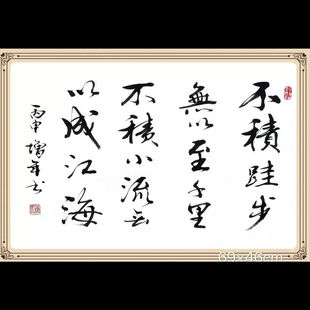 不積跬步
無以至千里
不積小流无
以成江海
丙申
69x46cm